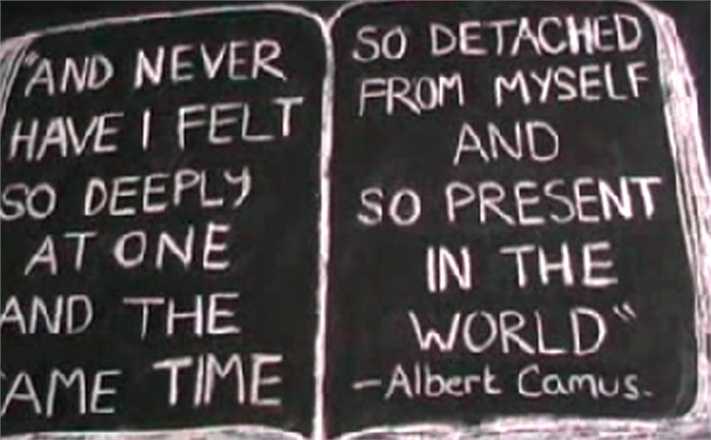 "AND NEVER
HAVE I FELT
SO DEEPLY
AT ONE
AND THE
AME TIME
SO DETACHED
FROM MYSELF
AND
SO PRESENT
IN THE
WORLD"
-Albert Camus.